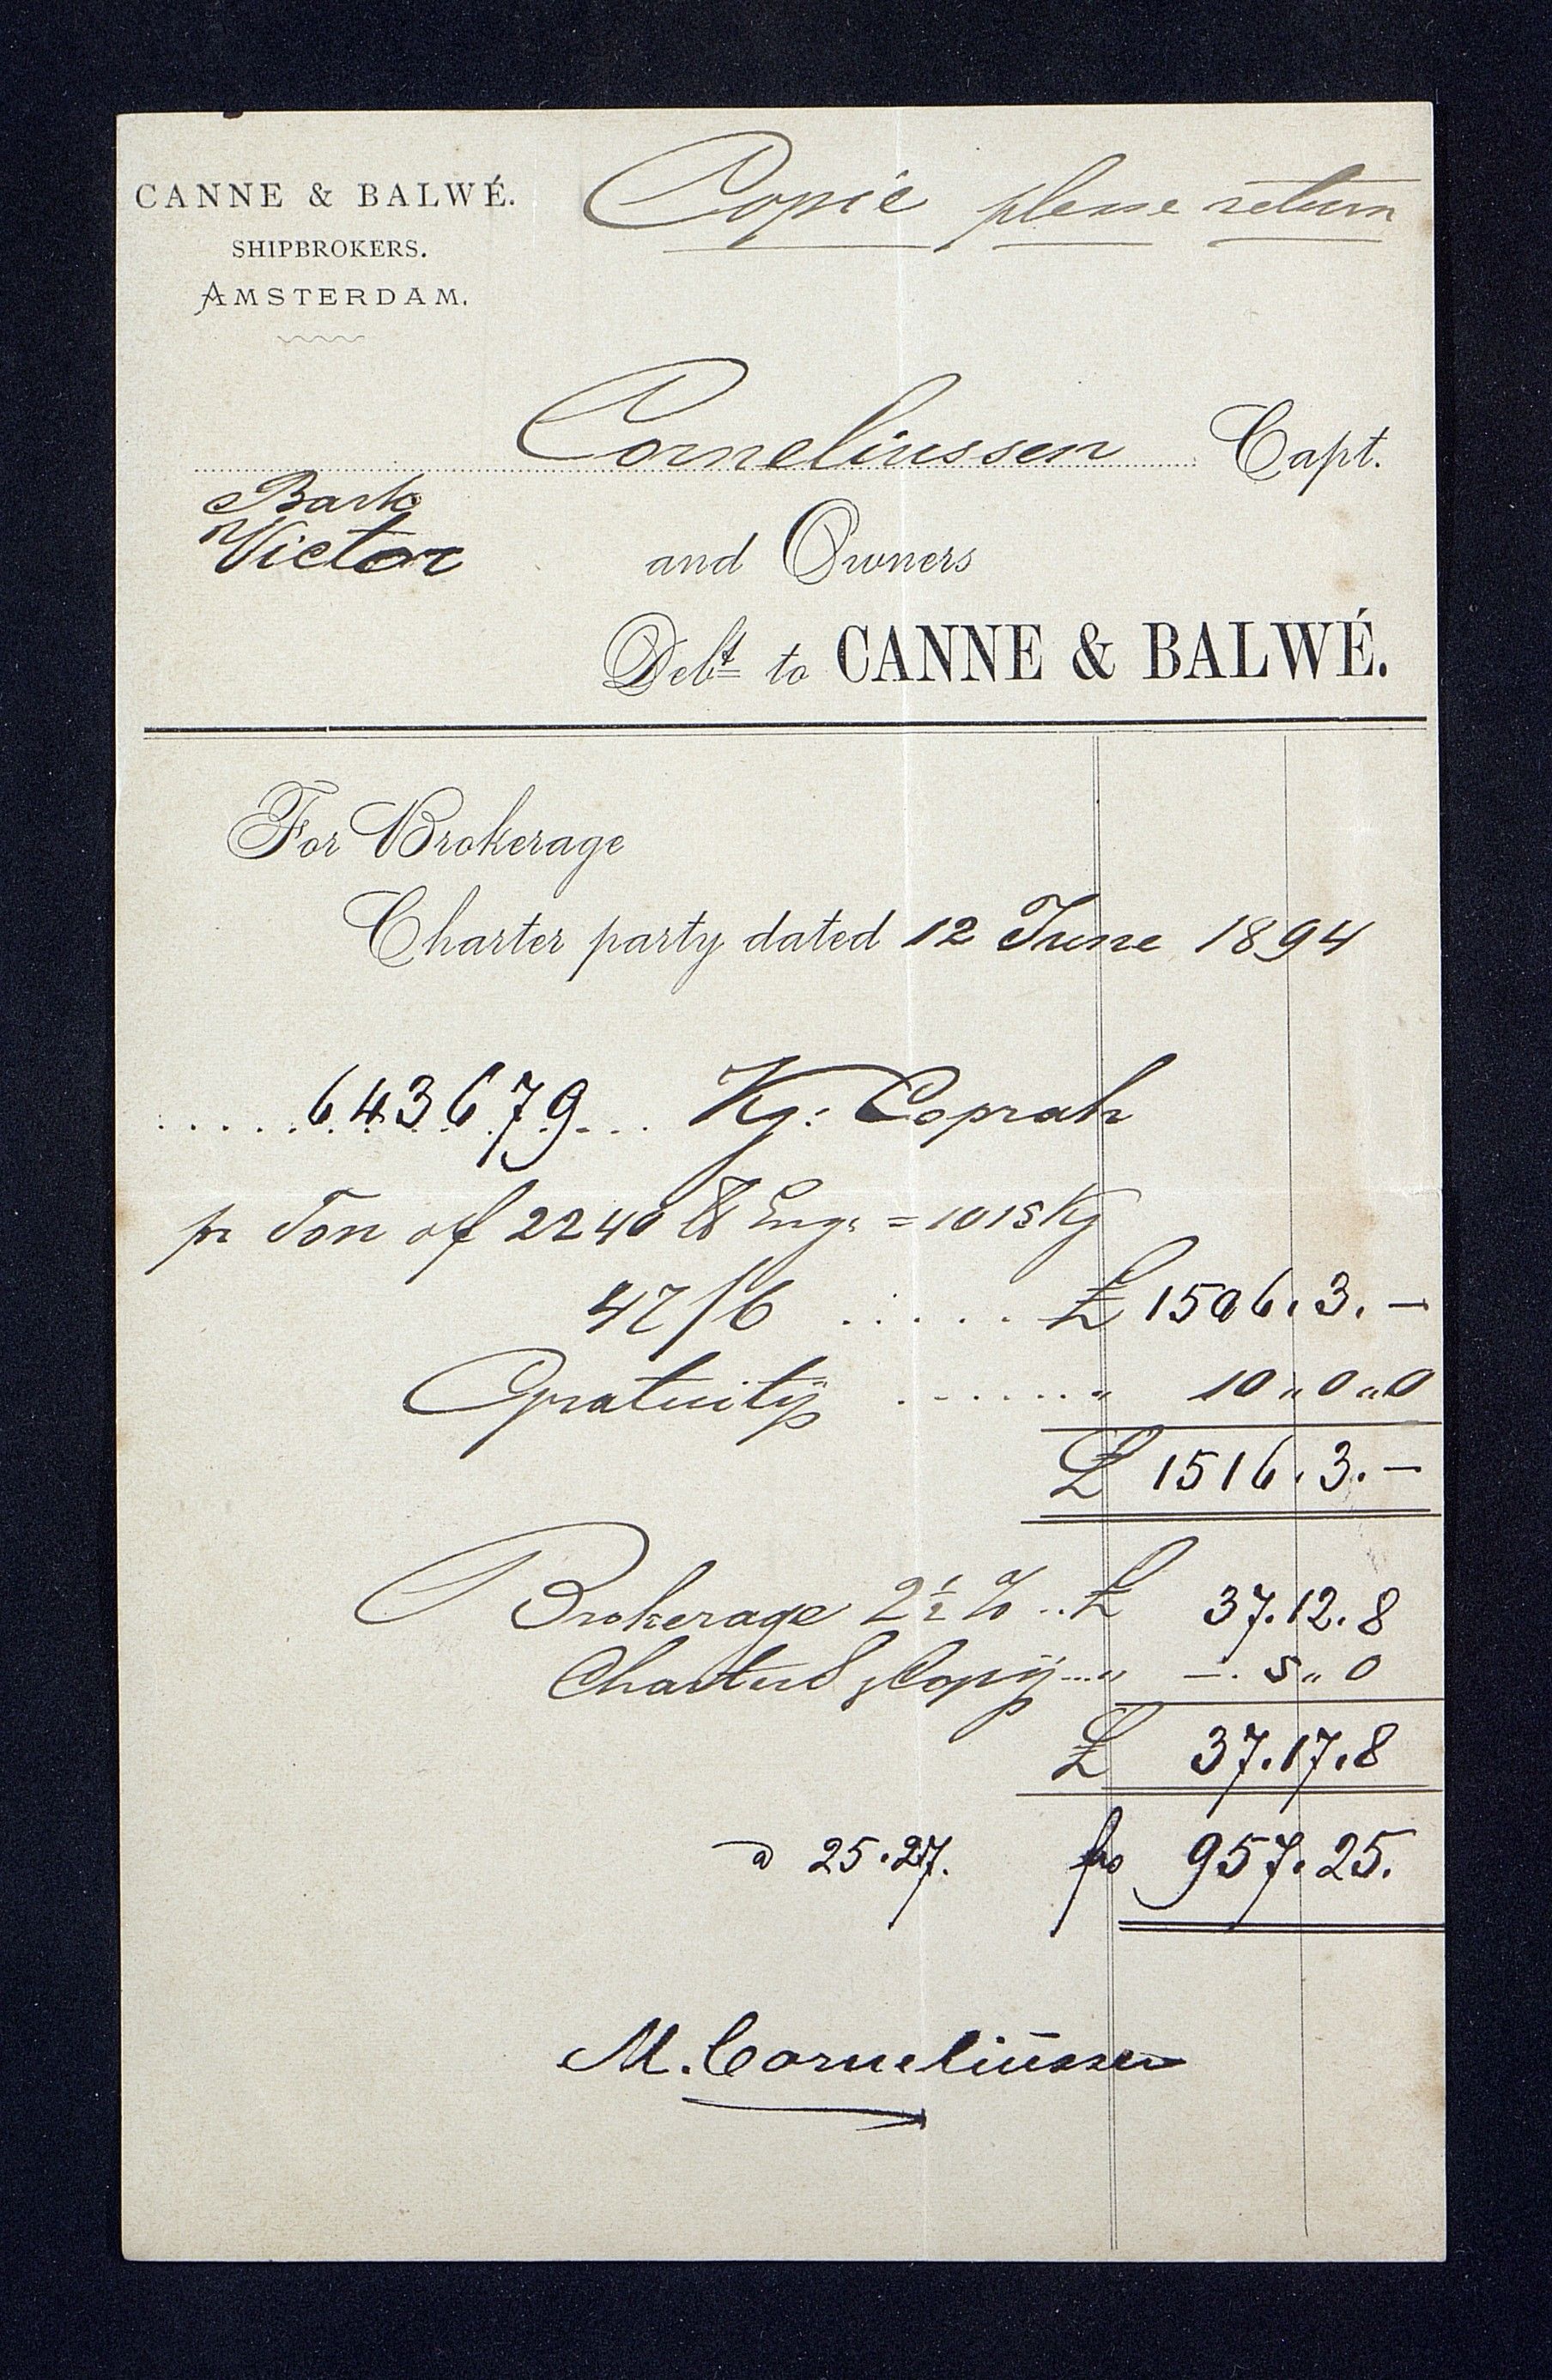 CANNE & BALWÉ.
SHIPBROKERS.
AMSTERDAM.
Copie please return
Corneliussen Capt.
Bark
Victor
and Owners
Debt to CANNE & BALWÉ.
For Brokerage
Charter party dated 12 June 1894
.....643679... Kg: Coprah
pr Ton of 2240 ℔ Eng. = 1015 Kg
47/6 ...... £ 1506.3.—
Gratuity ....... „ 10„0„0
£ 1516.3.—
Brokerage 2½ % .. £ 37.12.8
Copy ...„ —.5„0
£ 37.17.8
a 25.27. frs 957.25.
M. Corneliussen